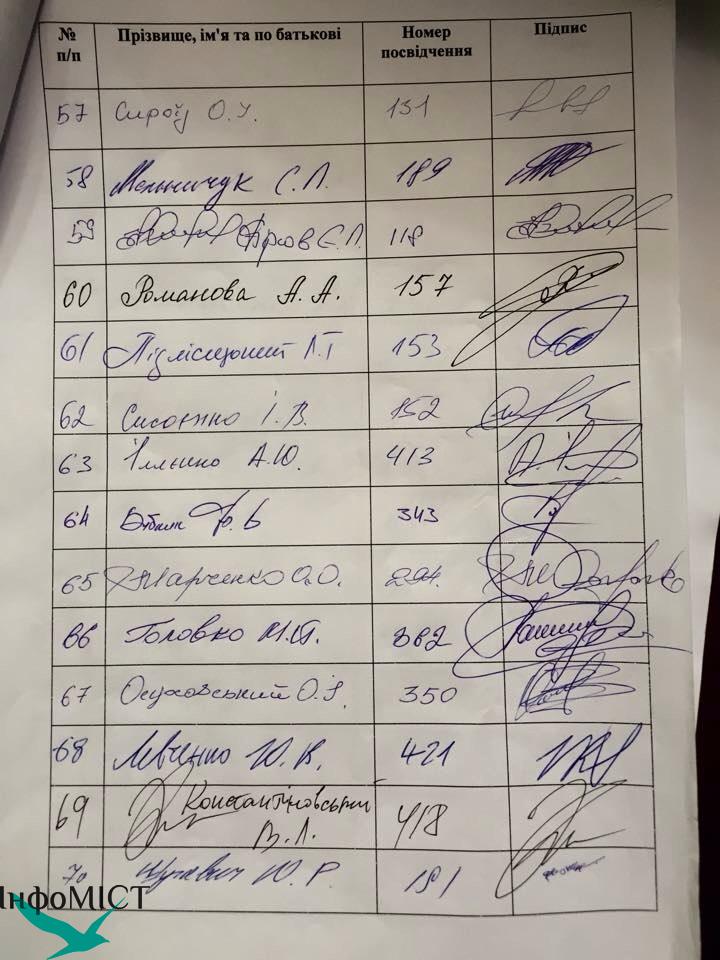 № п/п Прізвище, ім'я та по батькові Номер посвідчення Підпис
57 Сироїд О.І. 131
58 Мельничук С.П. 189
59 118
60 Романова А.А. 157
61 Підлісецький Л.Т 153
62 Сисоєнко І.В. 152
63 Іллєнко А.Ю. 413
64 Бублик Ю.В 343
65 Марченко О.О. 294
66 Головко М.Й. 382
67 Осуховський О.І. 350
68 Левченко Ю.В. 421
69 Константіновський
В.Л. 418
70 Ю.Р. 181
ІнфоМІСТ